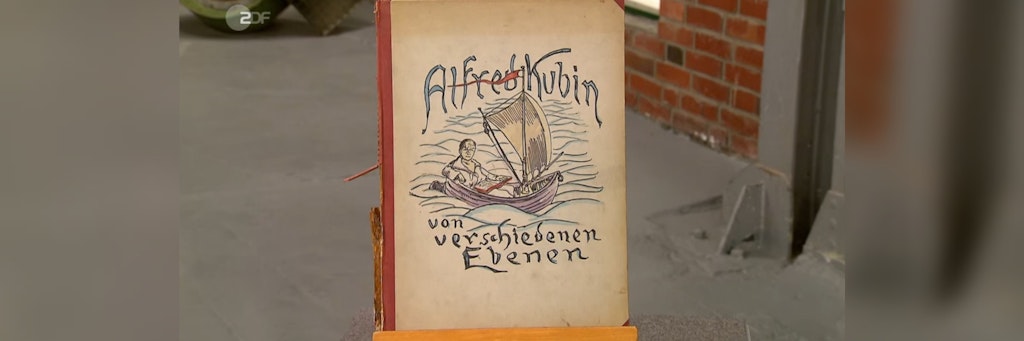 ZDF
Alfred Kubin
von
verschiedenen
Ebenen